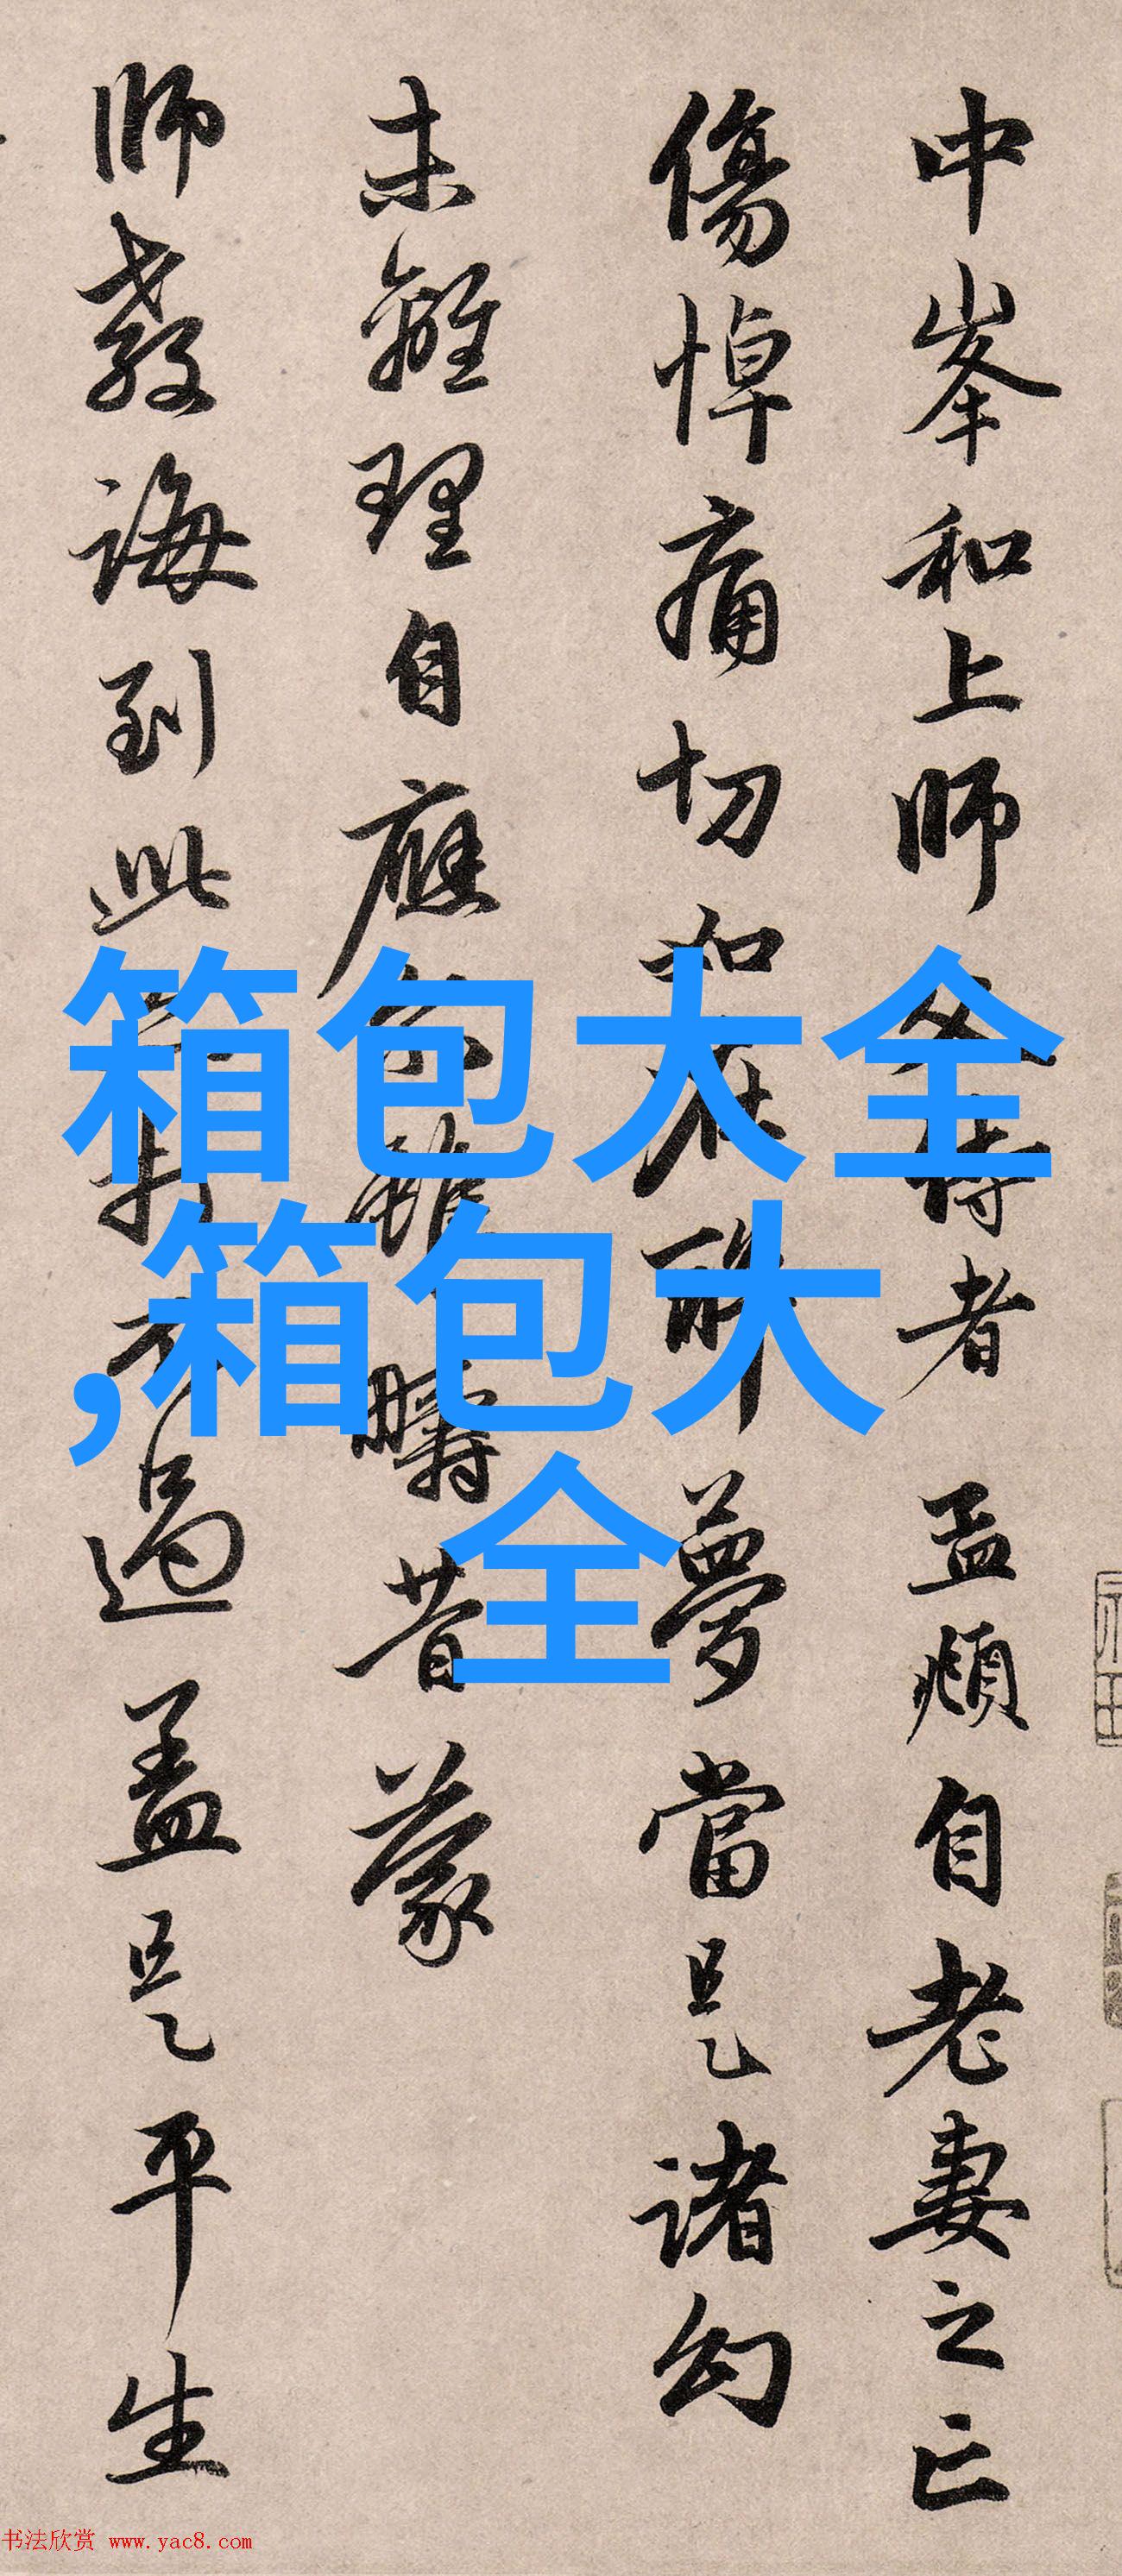 中峯和上師父侍者孟頫自老妻之亡
傷悼痛切如在醉夢當是諸幻
未離理自應雖疇昔蒙
師教誨到此打過蓋是平生
箱包大全
,箱包大
全
书法欣赏 www.yac8.com